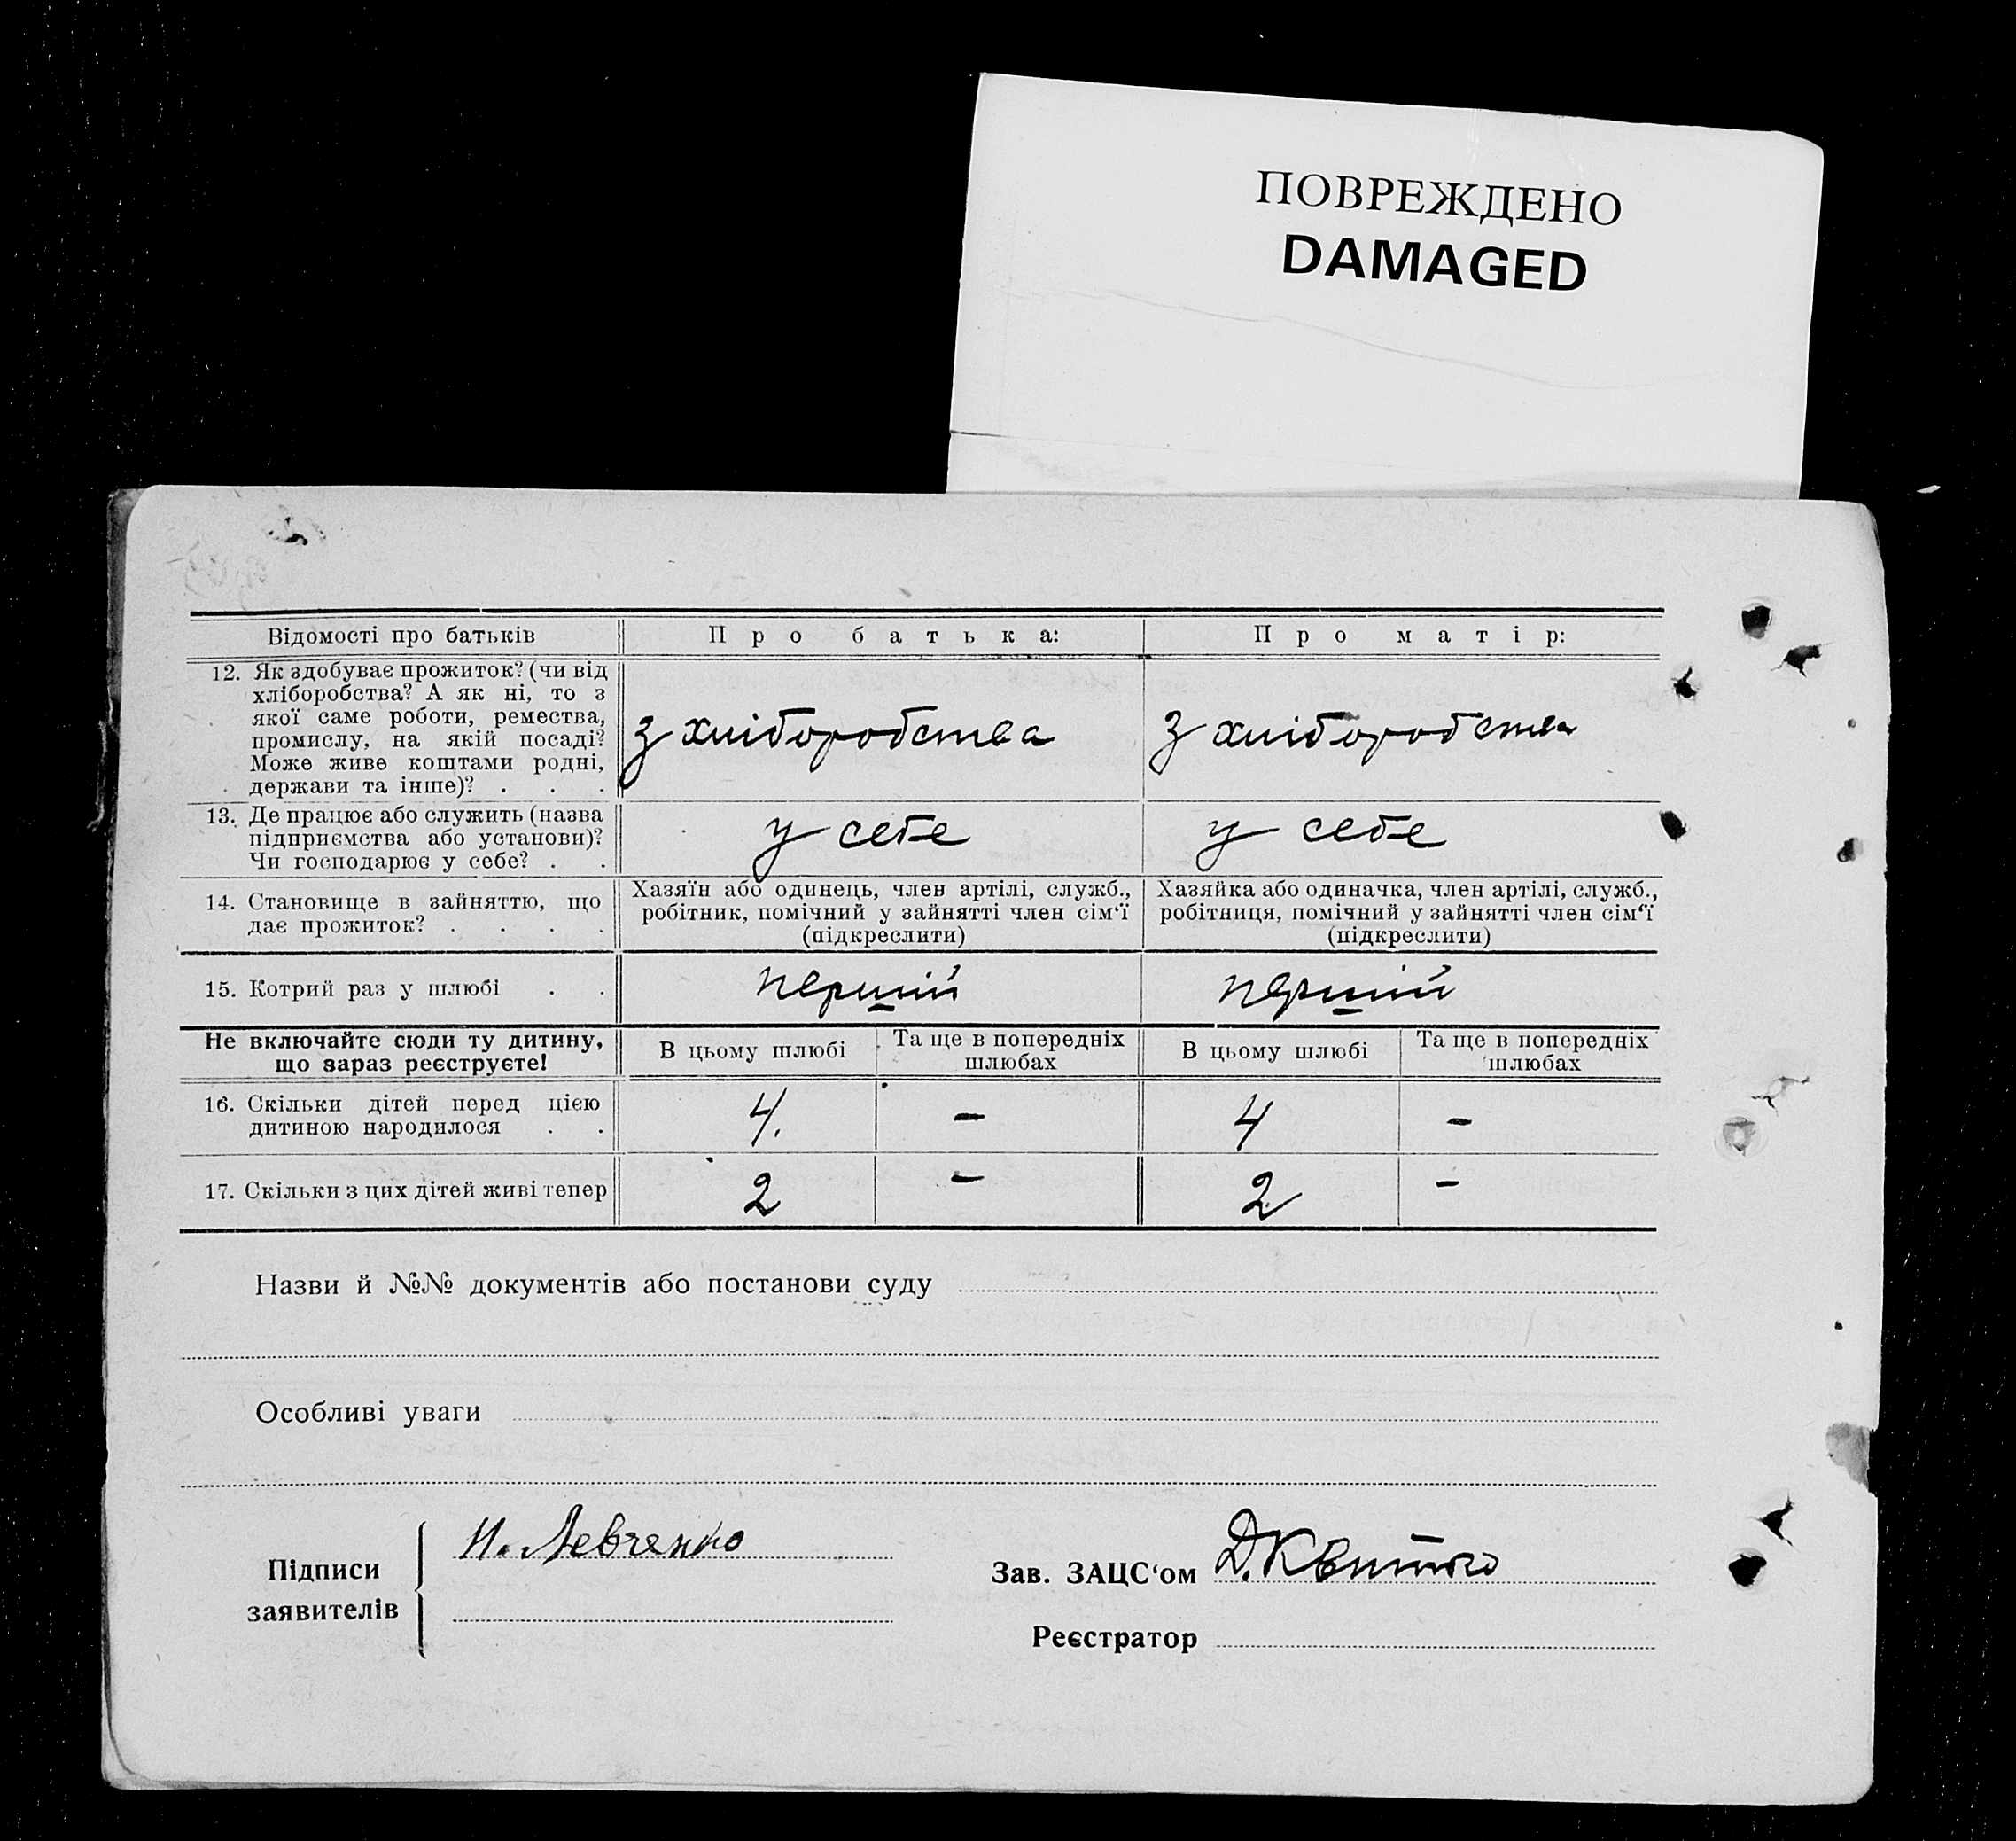 ПОВРЕЖДЕНО
DAMAGED
Відомості про батьків
Про батька:
Про матір:
12. Як здобуває прожиток? (чи від
хліборобства? А як ні, то з
якої саме роботи, ремества,
промислу, на якій посаді?
Може живе коштами родні,
держави та інше)? . . .
з хліборобства
з хліборобства
13. Де працює або служить (назва
підприємства або установи)?
Чи господарює у себе? . .
у себе
у себе
14. Становище в зайняттю, що
дає прожиток? . . . .
Хазяїн або одинець, член артілі, служб.,
робітник, помічний у зайнятті член сім‘ї
(підкреслити)
Хазяйка або одиначка, член артілі, служб.,
робітниця, помічний у зайнятті член сім‘ї
(підкреслити)
15. Котрий раз у шлюбі . .
перший
перший
Не включайте сюди ту дитину,
що зараз реєструєте!
В цьому шлюбі
Та ще в попередніх
шлюбах
В цьому шлюбі
Та ще в попередніх
шлюбах
16. Скільки дітей перед цією
дитиною народилося . .
4.
–
4
–
17. Скільки з цих дітей живі тепер
2
–
2
–
Назви й №№ документів або постанови суду
Особливі уваги
Підписи
заявителів
И. Левченко
Зав. ЗАЦС‘ом
Реєстратор